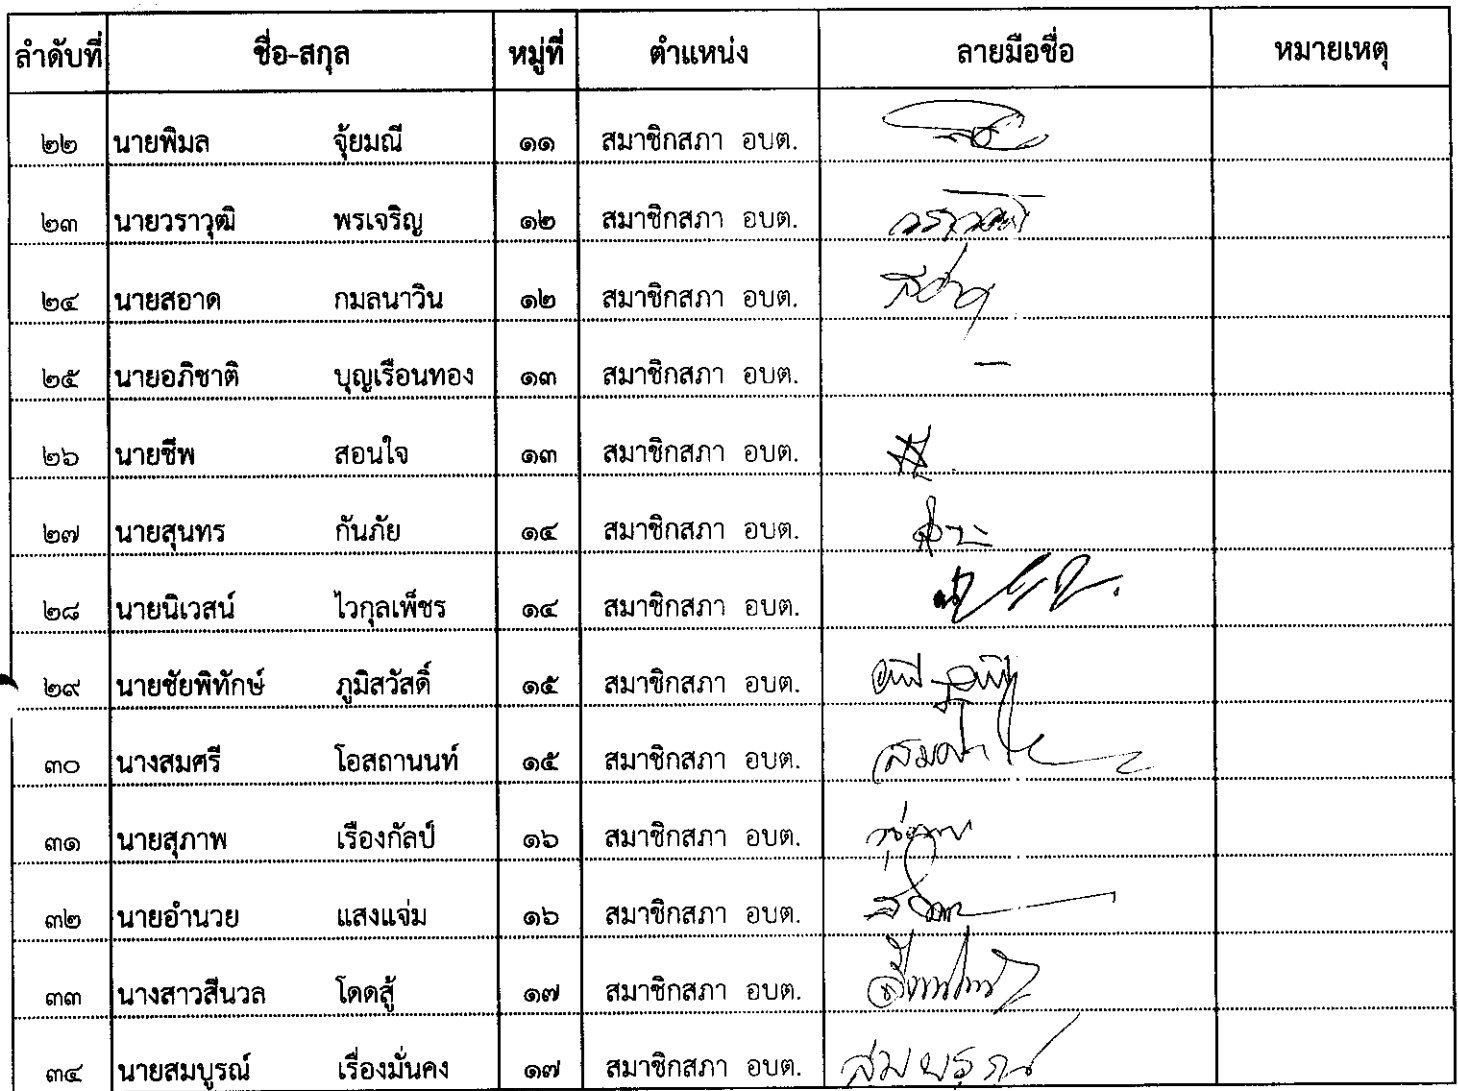 ลำดับที่ ชื่อ-สกุล หมู่ที่ ตำแหน่ง ลายมือชื่อ หมายเหตุ
๒๒ นายพิมล จุ้ยมณี ๑๑ สมาชิกสภา อบต.
๒๓ นายวราวุฒิ พรเจริญ ๑๒ สมาชิกสภา อบต.
๒๔ นายสอาด กมลนาวิน ๑๒ สมาชิกสภา อบต. สอาด
๒๕ นายอภิชาติ บุญเรือนทอง ๑๓ สมาชิกสภา อบต. —
๒๖ นายชีพ สอนใจ ๑๓ สมาชิกสภา อบต.
๒๗ นายสุนทร กันภัย ๑๔ สมาชิกสภา อบต.
๒๘ นายนิเวสน์ ไวกุลเพ็ชร ๑๔ สมาชิกสภา อบต.
๒๙ นายชัยพิทักษ์ ภูมิสวัสดิ์ ๑๕ สมาชิกสภา อบต.
๓๐ นางสมศรี โอสถานนท์ ๑๕ สมาชิกสภา อบต.
๓๑ นายสุภาพ เรืองกัลป์ ๑๖ สมาชิกสภา อบต.
๓๒ นายอำนวย แสงแจ่ม ๑๖ สมาชิกสภา อบต.
๓๓ นางสาวสีนวล โดดสู้ ๑๗ สมาชิกสภา อบต.
๓๔ นายสมบูรณ์ เรื่องมั่นคง ๑๗ สมาชิกสภา อบต. สมบูรณ์